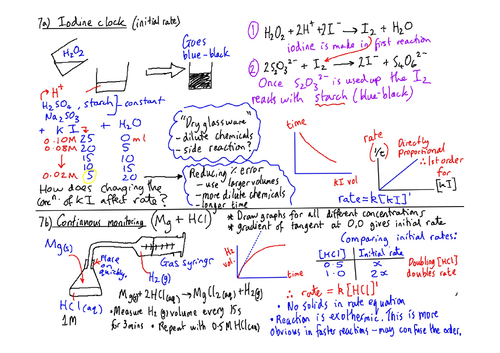 7a) Iodine clock (initial rate)
H₂O₂
Goes
blue-black
① H₂O₂ + 2H⁺ + 2I⁻ → I₂ + H₂O
iodine is made in first reaction
② 2S₂O₃²⁻ + I₂ → 2I⁻ + S₄O₆²⁻
Once S₂O₃²⁻ is used up the I₂
reacts with starch (blue-black)
H⁺
H₂SO₄, starch, Na₂SO₃ } constant
+ KI + H₂O
0.10M 25 0 ml
0.08M 20 5
15 10
10 15
0.02M 5 20
How does changing the
concⁿ of KI affect rate?
"Dry glassware"
- dilute chemicals
- side reaction?
Reducing % error
- use larger volumes
- more dilute chemicals
- longer time
time
KI vol
rate
(1/t)
[KI]
Directly
Proportional
∴ 1st order
for
[KI]
rate = k[KI]¹
7b) Continuous monitoring (Mg + HCl)
Mg(s)
Place
on
quickly.
H₂(g)
Gas syringe
HCl(aq)
1M
Mg(s) + 2HCl(aq) → MgCl₂(aq) + H₂(g)
• Measure H₂(g) volume every 15s
for 3mins • Repeat with 0.5M HCl(aq)
* Draw graphs for all different concentrations
* gradient of tangent at 0,0 gives initial rate
H₂
vol
time
Comparing initial rates:
[HCl] Initial rate
0.5 x
1.0 2x
Doubling [HCl]
doubles rate
∴ rate = k[HCl]¹
• No solids in rate equation
• Reaction is exothermic. This is more
obvious in faster reactions - may confuse the order.